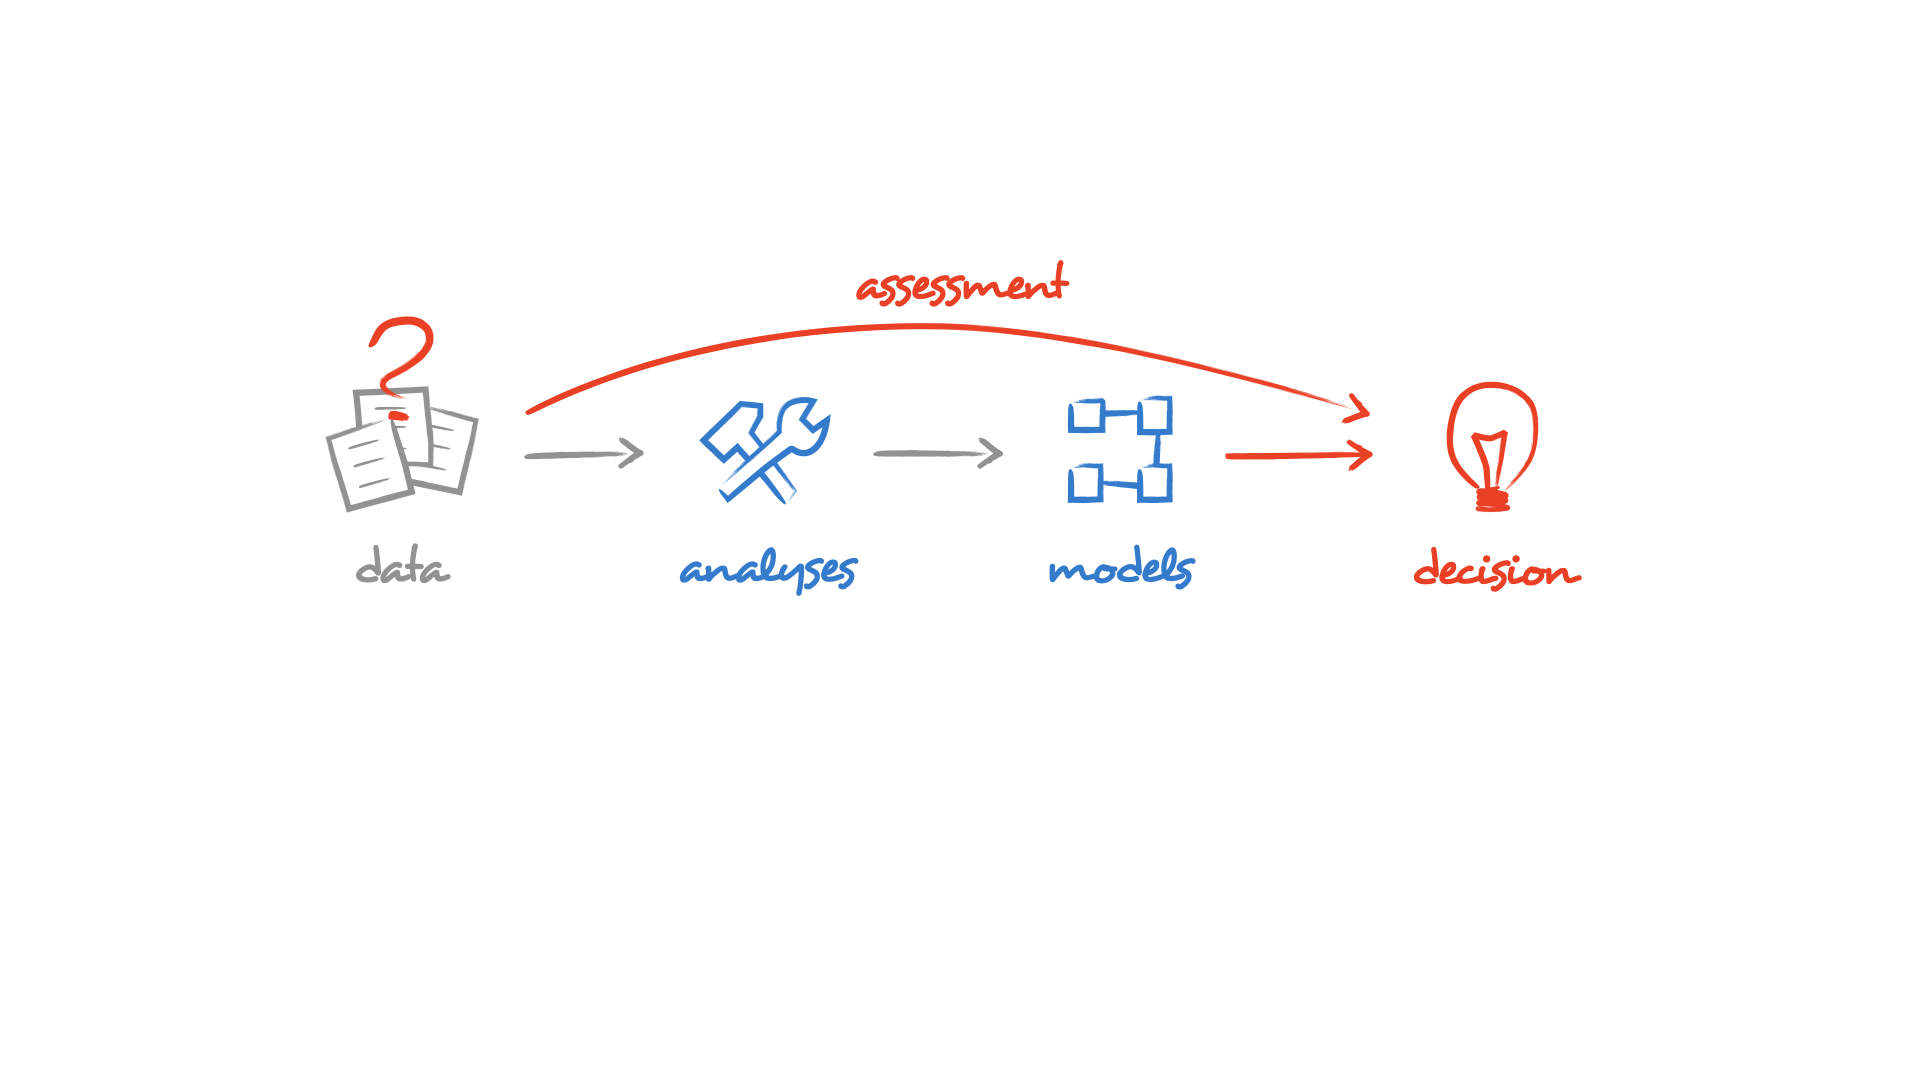 assessment
?
data
analyses
models
decision